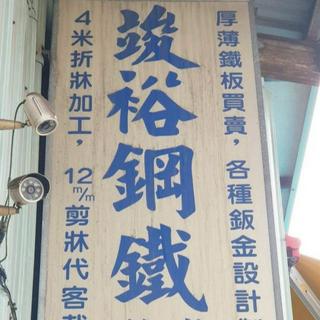 厚薄鐵板買賣，各種鈑金設計
竣裕鋼鐵
4米折牀加工，12m/m剪牀代客裁